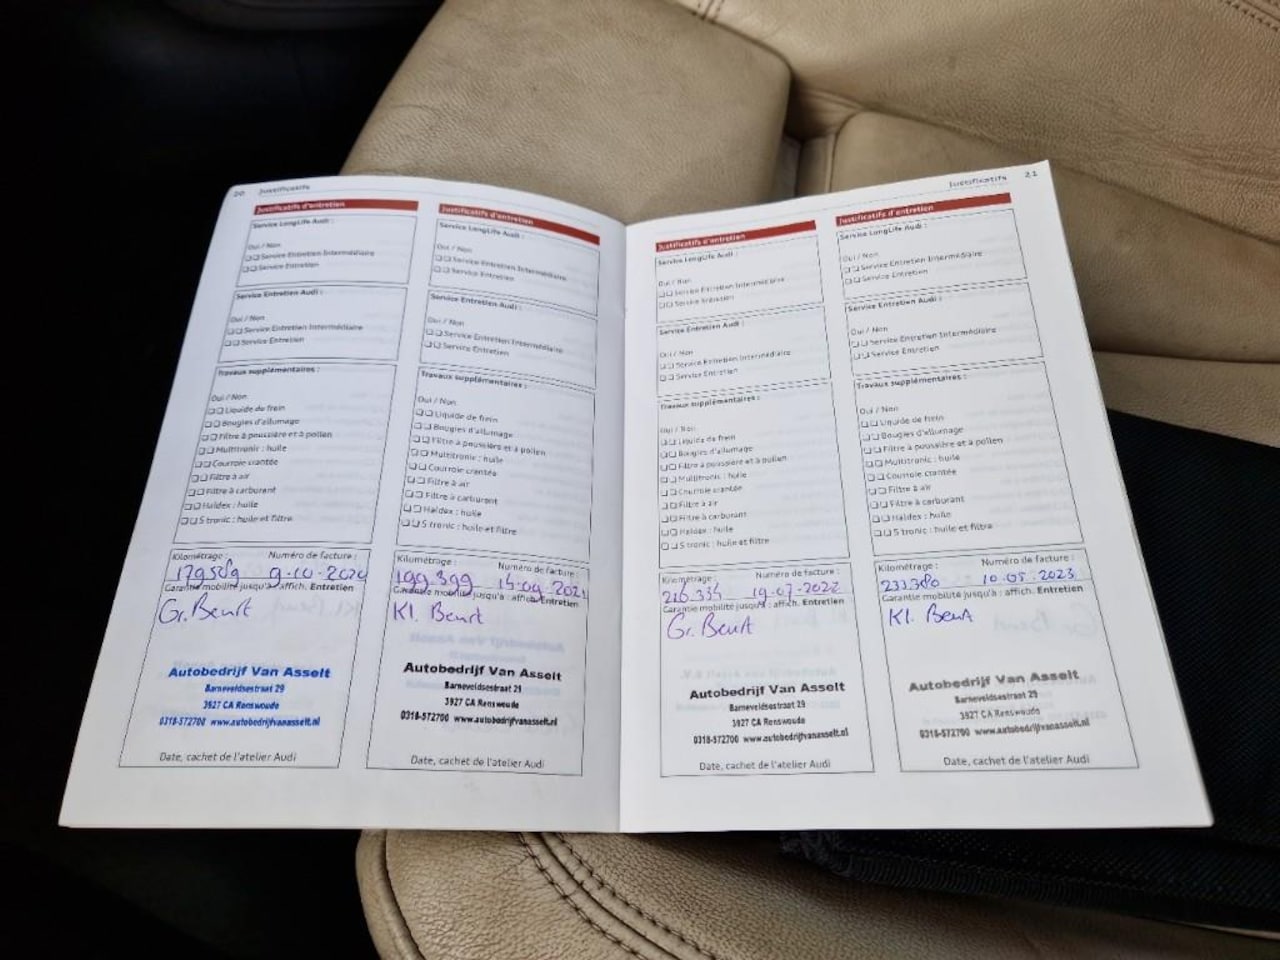 20 Justificatifs
Justificatifs d'entretien
Service LongLife Audi :
Oui / Non
❑ ❑ Service Entretien Intermédiaire
❑ ❑ Service Entretien
Service Entretien Audi :
Oui / Non
❑ ❑ Service Entretien Intermédiaire
❑ ❑ Service Entretien
Travaux supplémentaires :
Oui / Non
❑ ❑ Liquide de frein
❑ ❑ Bougies d'allumage
❑ ❑ Filtre à poussière et à pollen
❑ ❑ Multitronic : huile
❑ ❑ Courroie crantée
❑ ❑ Filtre à air
❑ ❑ Filtre à carburant
❑ ❑ Haldex : huile
❑ ❑ S tronic : huile et filtre
Kilométrage : Numéro de facture :
179589 9-10-2020
Garantie mobilité jusqu'à : affich. Entretien
Gr. Beurt
Autobedrijf Van Asselt
Barneveldsestraat 29
3927 CA Renswoude
0318-572700 www.autobedrijfvanasselt.nl
Date, cachet de l'atelier Audi
Justificatifs d'entretien
Service LongLife Audi :
Oui / Non
❑ ❑ Service Entretien Intermédiaire
❑ ❑ Service Entretien
Service Entretien Audi :
Oui / Non
❑ ❑ Service Entretien Intermédiaire
❑ ❑ Service Entretien
Travaux supplémentaires :
Oui / Non
❑ ❑ Liquide de frein
❑ ❑ Bougies d'allumage
❑ ❑ Filtre à poussière et à pollen
❑ ❑ Multitronic : huile
❑ ❑ Courroie crantée
❑ ❑ Filtre à air
❑ ❑ Filtre à carburant
❑ ❑ Haldex : huile
❑ ❑ S tronic : huile et filtre
Kilométrage : Numéro de facture :
199.399 14-09-2021
Garantie mobilité jusqu'à : affich. Entretien
Kl. Beurt
Autobedrijf Van Asselt
Barneveldsestraat 29
3927 CA Renswoude
0318-572700 www.autobedrijfvanasselt.nl
Date, cachet de l'atelier Audi
Justificatifs 21
Justificatifs d'entretien
Service LongLife Audi :
Oui / Non
❑ ❑ Service Entretien Intermédiaire
❑ ❑ Service Entretien
Service Entretien Audi :
Oui / Non
❑ ❑ Service Entretien Intermédiaire
❑ ❑ Service Entretien
Travaux supplémentaires :
Oui / Non
❑ ❑ Liquide de frein
❑ ❑ Bougies d'allumage
❑ ❑ Filtre à poussière et à pollen
❑ ❑ Multitronic : huile
❑ ❑ Courroie crantée
❑ ❑ Filtre à air
❑ ❑ Filtre à carburant
❑ ❑ Haldex : huile
❑ ❑ S tronic : huile et filtre
Kilométrage : Numéro de facture :
216.334 19-07-2022
Garantie mobilité jusqu'à : affich. Entretien
Gr. Beurt
Autobedrijf Van Asselt
Barneveldsestraat 29
3927 CA Renswoude
0318-572700 www.autobedrijfvanasselt.nl
Date, cachet de l'atelier Audi
Justificatifs d'entretien
Service LongLife Audi :
Oui / Non
❑ ❑ Service Entretien Intermédiaire
❑ ❑ Service Entretien
Service Entretien Audi :
Oui / Non
❑ ❑ Service Entretien Intermédiaire
❑ ❑ Service Entretien
Travaux supplémentaires :
Oui / Non
❑ ❑ Liquide de frein
❑ ❑ Bougies d'allumage
❑ ❑ Filtre à poussière et à pollen
❑ ❑ Multitronic : huile
❑ ❑ Courroie crantée
❑ ❑ Filtre à air
❑ ❑ Filtre à carburant
❑ ❑ Haldex : huile
❑ ❑ S tronic : huile et filtre
Kilométrage : Numéro de facture :
233.380 10-05-2023
Garantie mobilité jusqu'à : affich. Entretien
Kl. Beurt
Autobedrijf Van Asselt
Barneveldsestraat 29
3927 CA Renswoude
0318-572700 www.autobedrijfvanasselt.nl
Date, cachet de l'atelier Audi